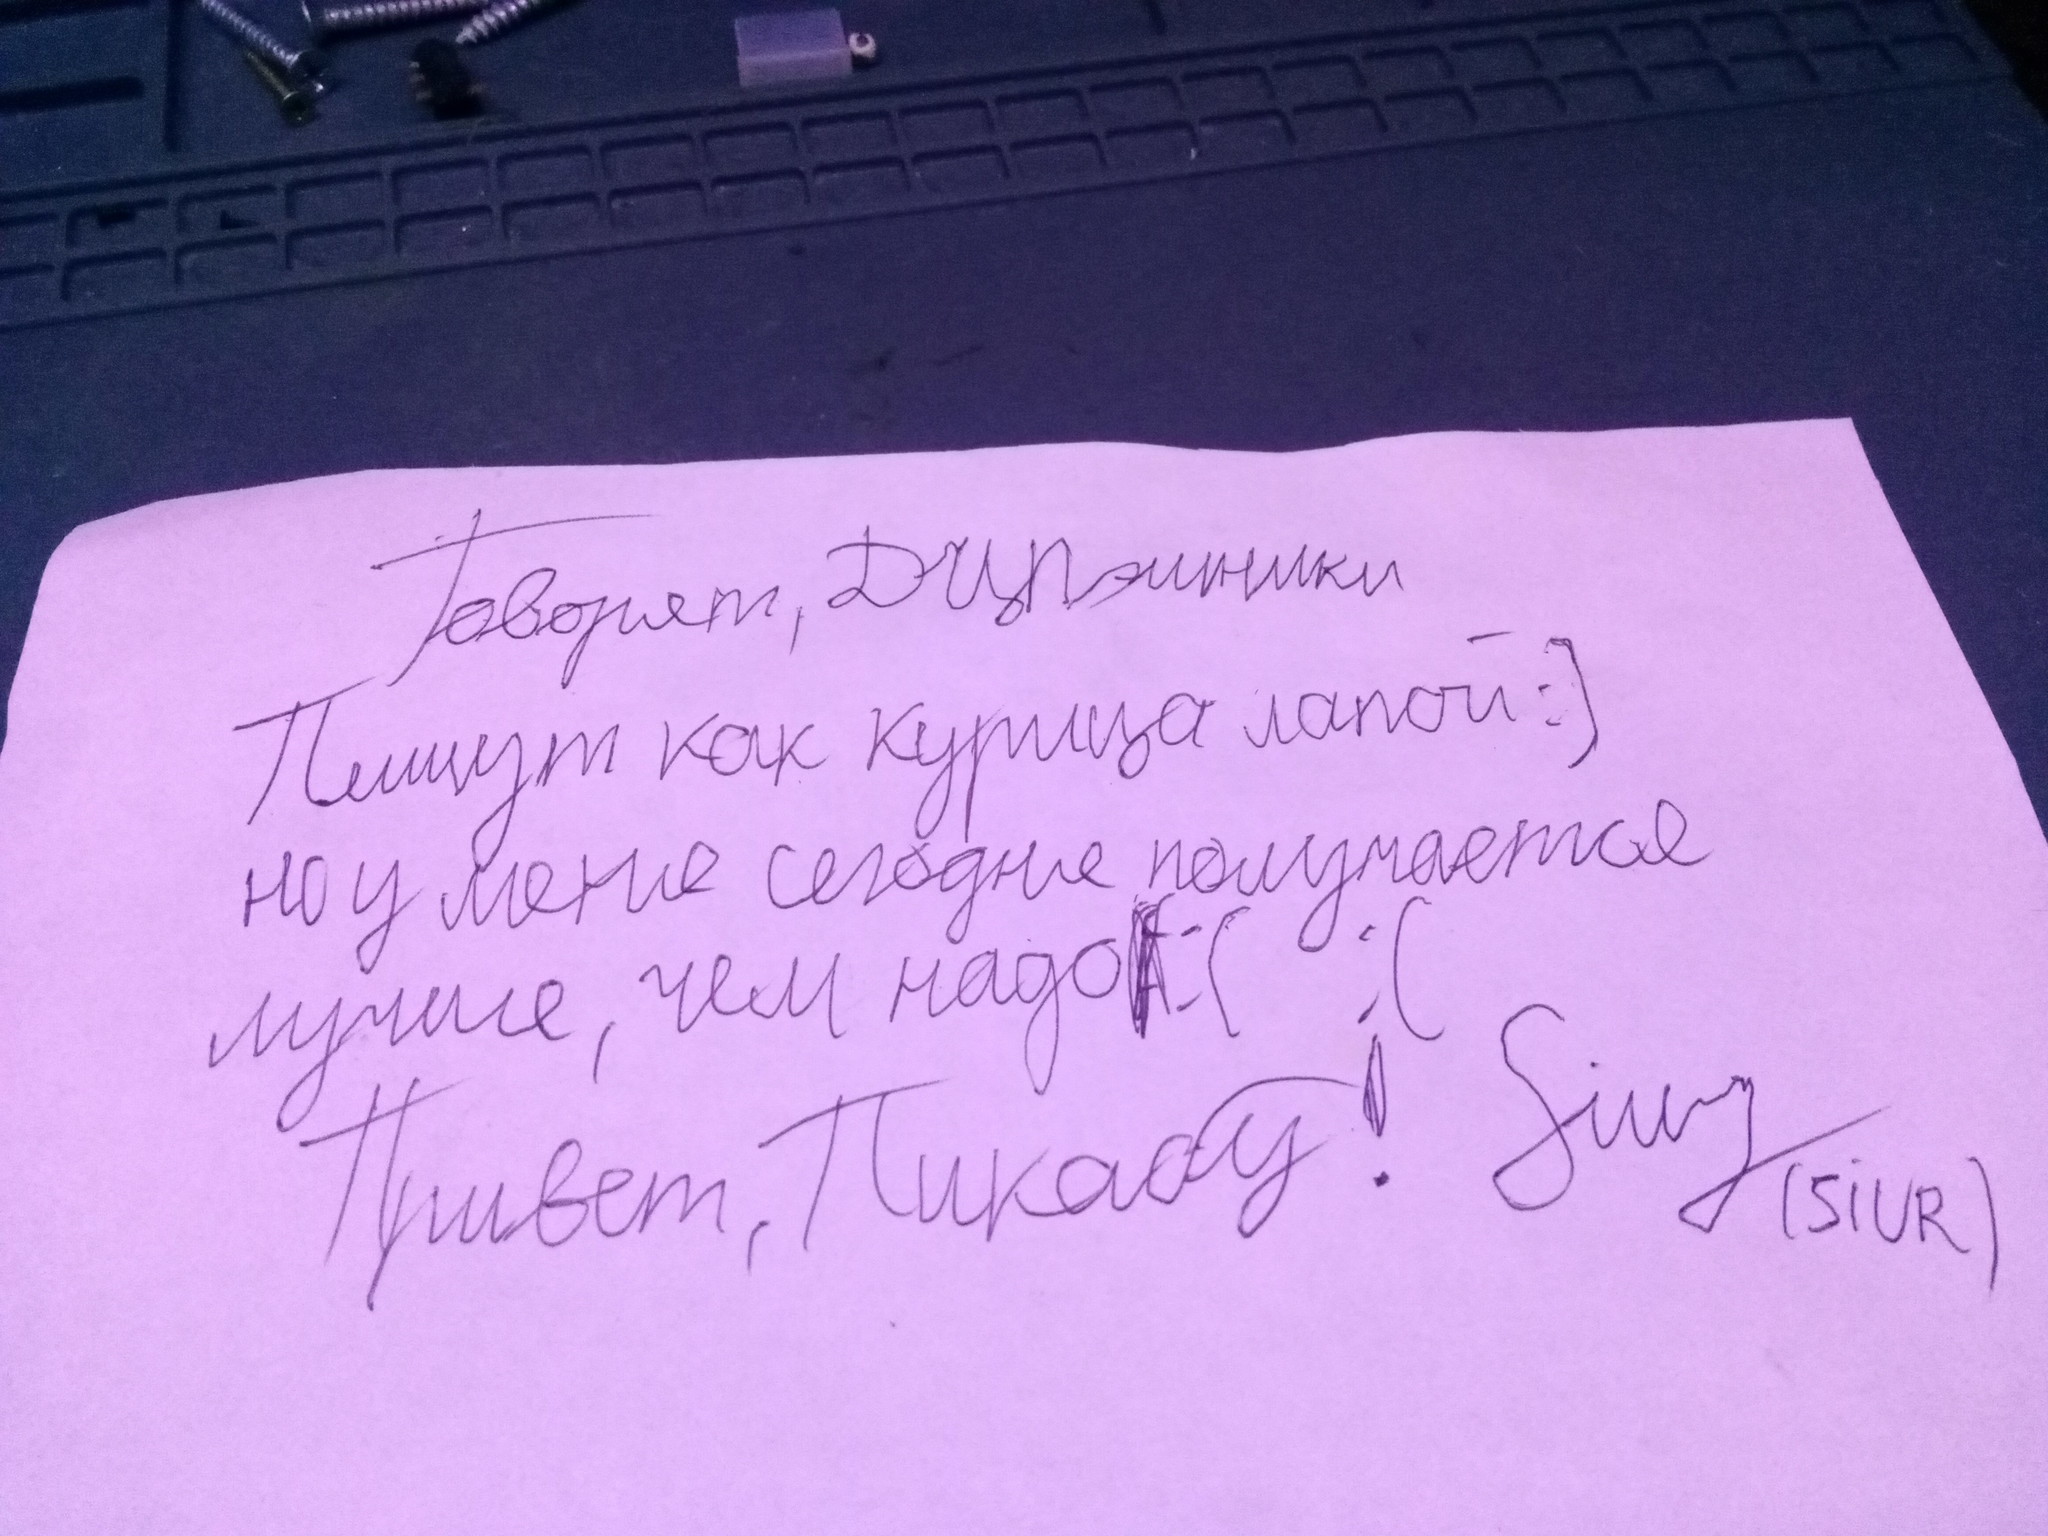 Говорят, ДЦПэшники
Пишут как курица лапой :]
но у меня сегодня получается
лучше, чем надо :( :(
Привет, Пикабу! Siur
(SiUR)